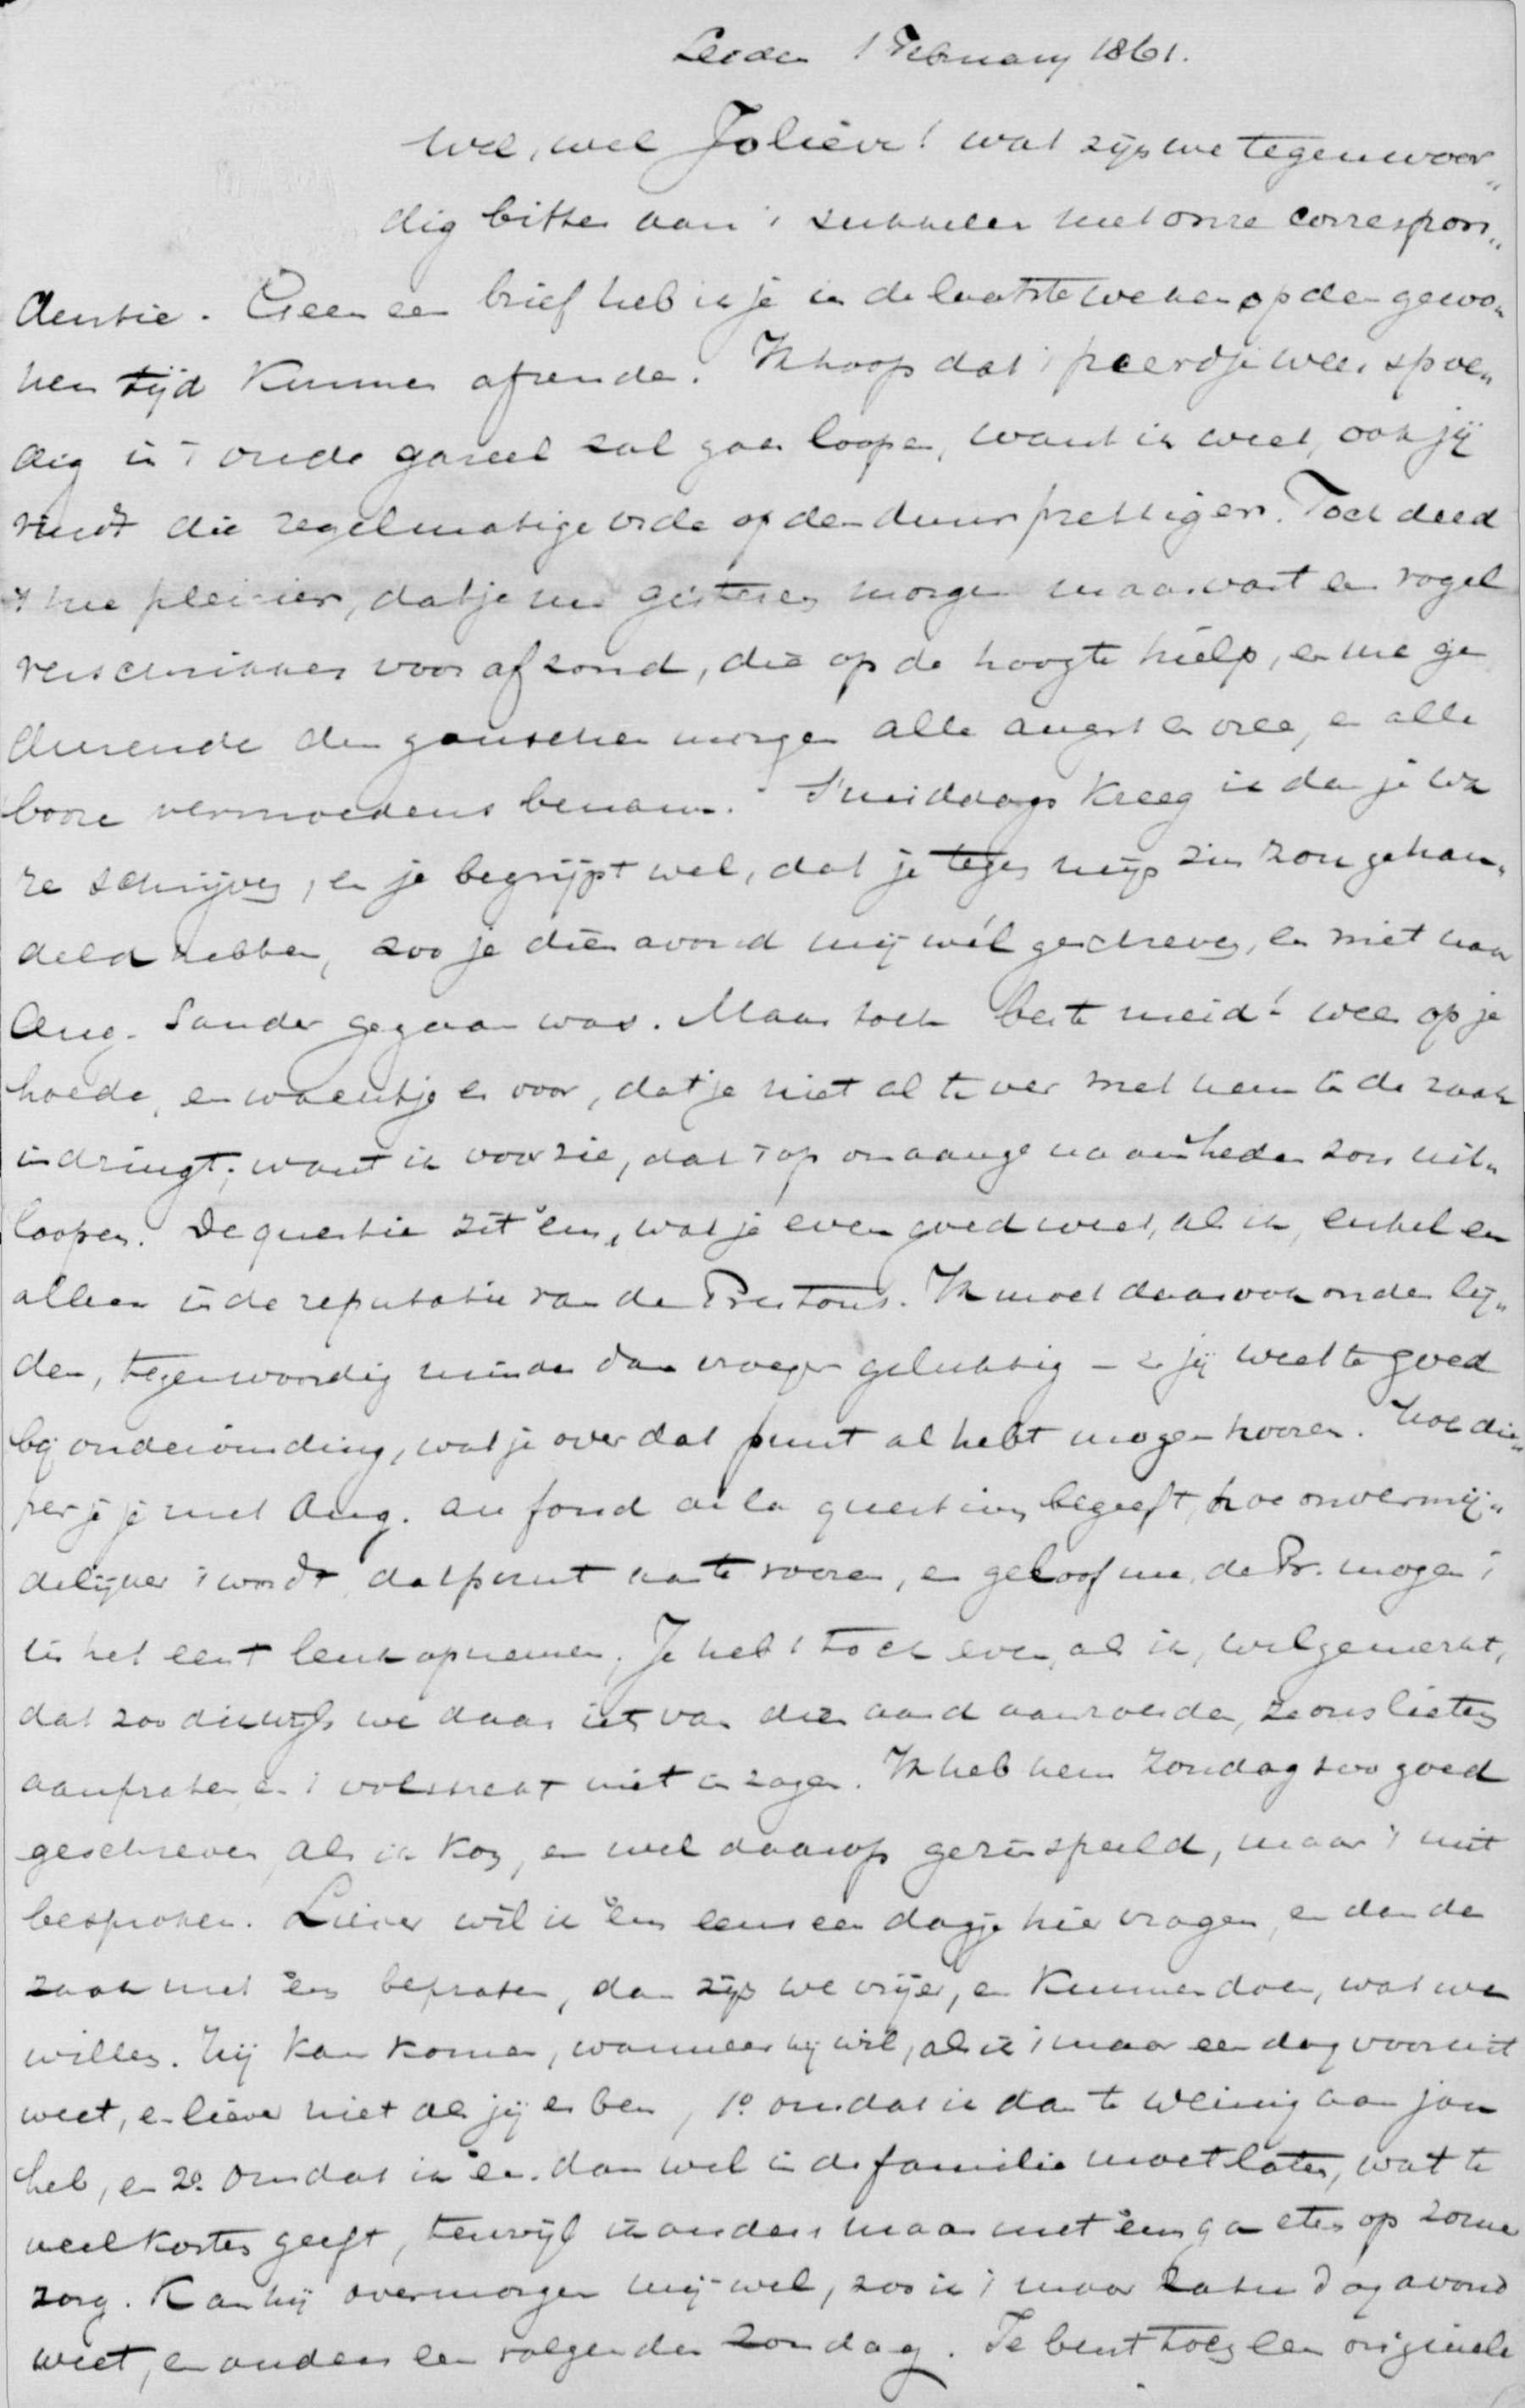 Leiden 1 February 1861.
Wel, wel Jolieve! wat zijn we tegenwoor„
dig bitter aan 't sukkelen met onze correspon„
dentie. Geen een brief heb ik je in de laatste weken op den gewo„
nen tijd kunnen afzenden. Ik hoop dat 't peerdje weer spoe„
dig in 't oude gareel zal gaan loopen, want ik weet, ook jij
vindt die regelmatige orde op den duur prettiger. Toch deed
't me pleizier, dat je me gisteren morgen maar vast een vogel
verschrikker voor af zond, die op de hoogte hielp, en me ge
durende den ganschen morgen alle angst en vree, en alle
booze vermoedens benam. 's Middags kreeg ik dan je wa
re schrijven, en je begrijpt wel, dat je tegen mijn zin zou gehan„
deld hebben, zoo je dien avond mij wél geschreven, en niet naar
Aug. Sander gegaan was. Maar toch beste meid! wees op je
hoede, en wacht je er voor, dat je niet al te ver met hem in de zaak
indringt; want ik voorzie, dat 't op onaangenaamheden zou uit„
loopen. De questie zit 'em, wat je even goed weet, als ik, enkel en
alleen in de reputatie van de Prestons. Ik moet daar ook onder lij„
den, tegenwoordig minder dan vroeger gelukkig – en jij weet te goed
bij ondervinding, wat je over dat punt al hebt mogen hooren. Hoe die„
per je je met Aug. au fond de la question begeeft, hoe onvermij„
delijker 't wordt, dat punt aan te roeren, en geloof me, de Pr. mogen 't
in het eerst leuk opnemen, Je hebt toch even, als ik, wel gemerkt,
dat zoo dikwijls we daar iets van dien aard aanroerden, ze ons lieten
aanpraten, en 't volstrekt niet in zagen. Ik heb hem Zondag zoo goed
geschreven, als ik kon, en wel daarop gezinspeeld, maar 't niet
besproken. Liever wil ik 'em eens een dagje hier vragen, en dan de
zaak met 'em bepraten, dan zijn we vrijer, en kunnen doen, wat we
willen. Hij kan komen, wanneer hij wil, als ik 't maar een dag vooruit
weet, en liever niet als jij er ben, 1o omdat ik dan te weinig aan jou
heb, en 2o. omdat ik 'em dan wel in de familie moet laten, wat te
veel kosten geeft, terwijl ik anders maar met 'em ga eten op Zome
zorg. Kan hij overmorgen mij wel, zoo ik 't maar Zaturdag avond
weet, en anders een volgenden Zondag. Je bent toch een originele